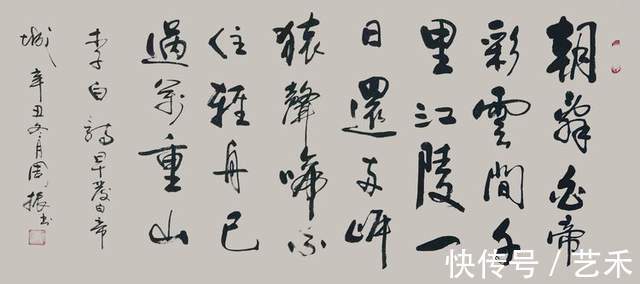 朝辭白帝
彩雲間千
里江陵一
日還兩岸
猿聲啼不
住輕舟已
過萬重山
李白詩早發白帝
城 辛丑冬月周振書
快传号 / 艺禾